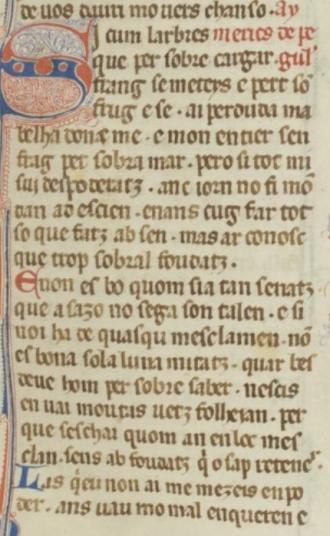 de uos auuti mo uers chanso . ay
Si cum larbres meric de pe
que per sobre cargar . guil'
frang se meteys e pert so
frug e se . ai perduda ma
belha done me . e mon entier sen
frag per sobra mar . pero si tot mi
sui despoderatz . anc iorn no fi mō
dan ad escien . enans cug far tot
so que fatz ab sen . mas ar conosc
que trop sobral foudatz .
E non es bo quom sia tan senatz
que a sazo no sega son talen . e si
noi ha de quasqu mesclamen . nō
es bona sola luna mitatz . quar bes
deue hom per sobre saber . nescis
en uai moutas uetz folhejan . per
que seschai quom an en loc mes
clan . sens ab foudatz q̄ o sap retener .
Las q̄u non ai me mezeis en po
der . ans uau mo mal enqueren e